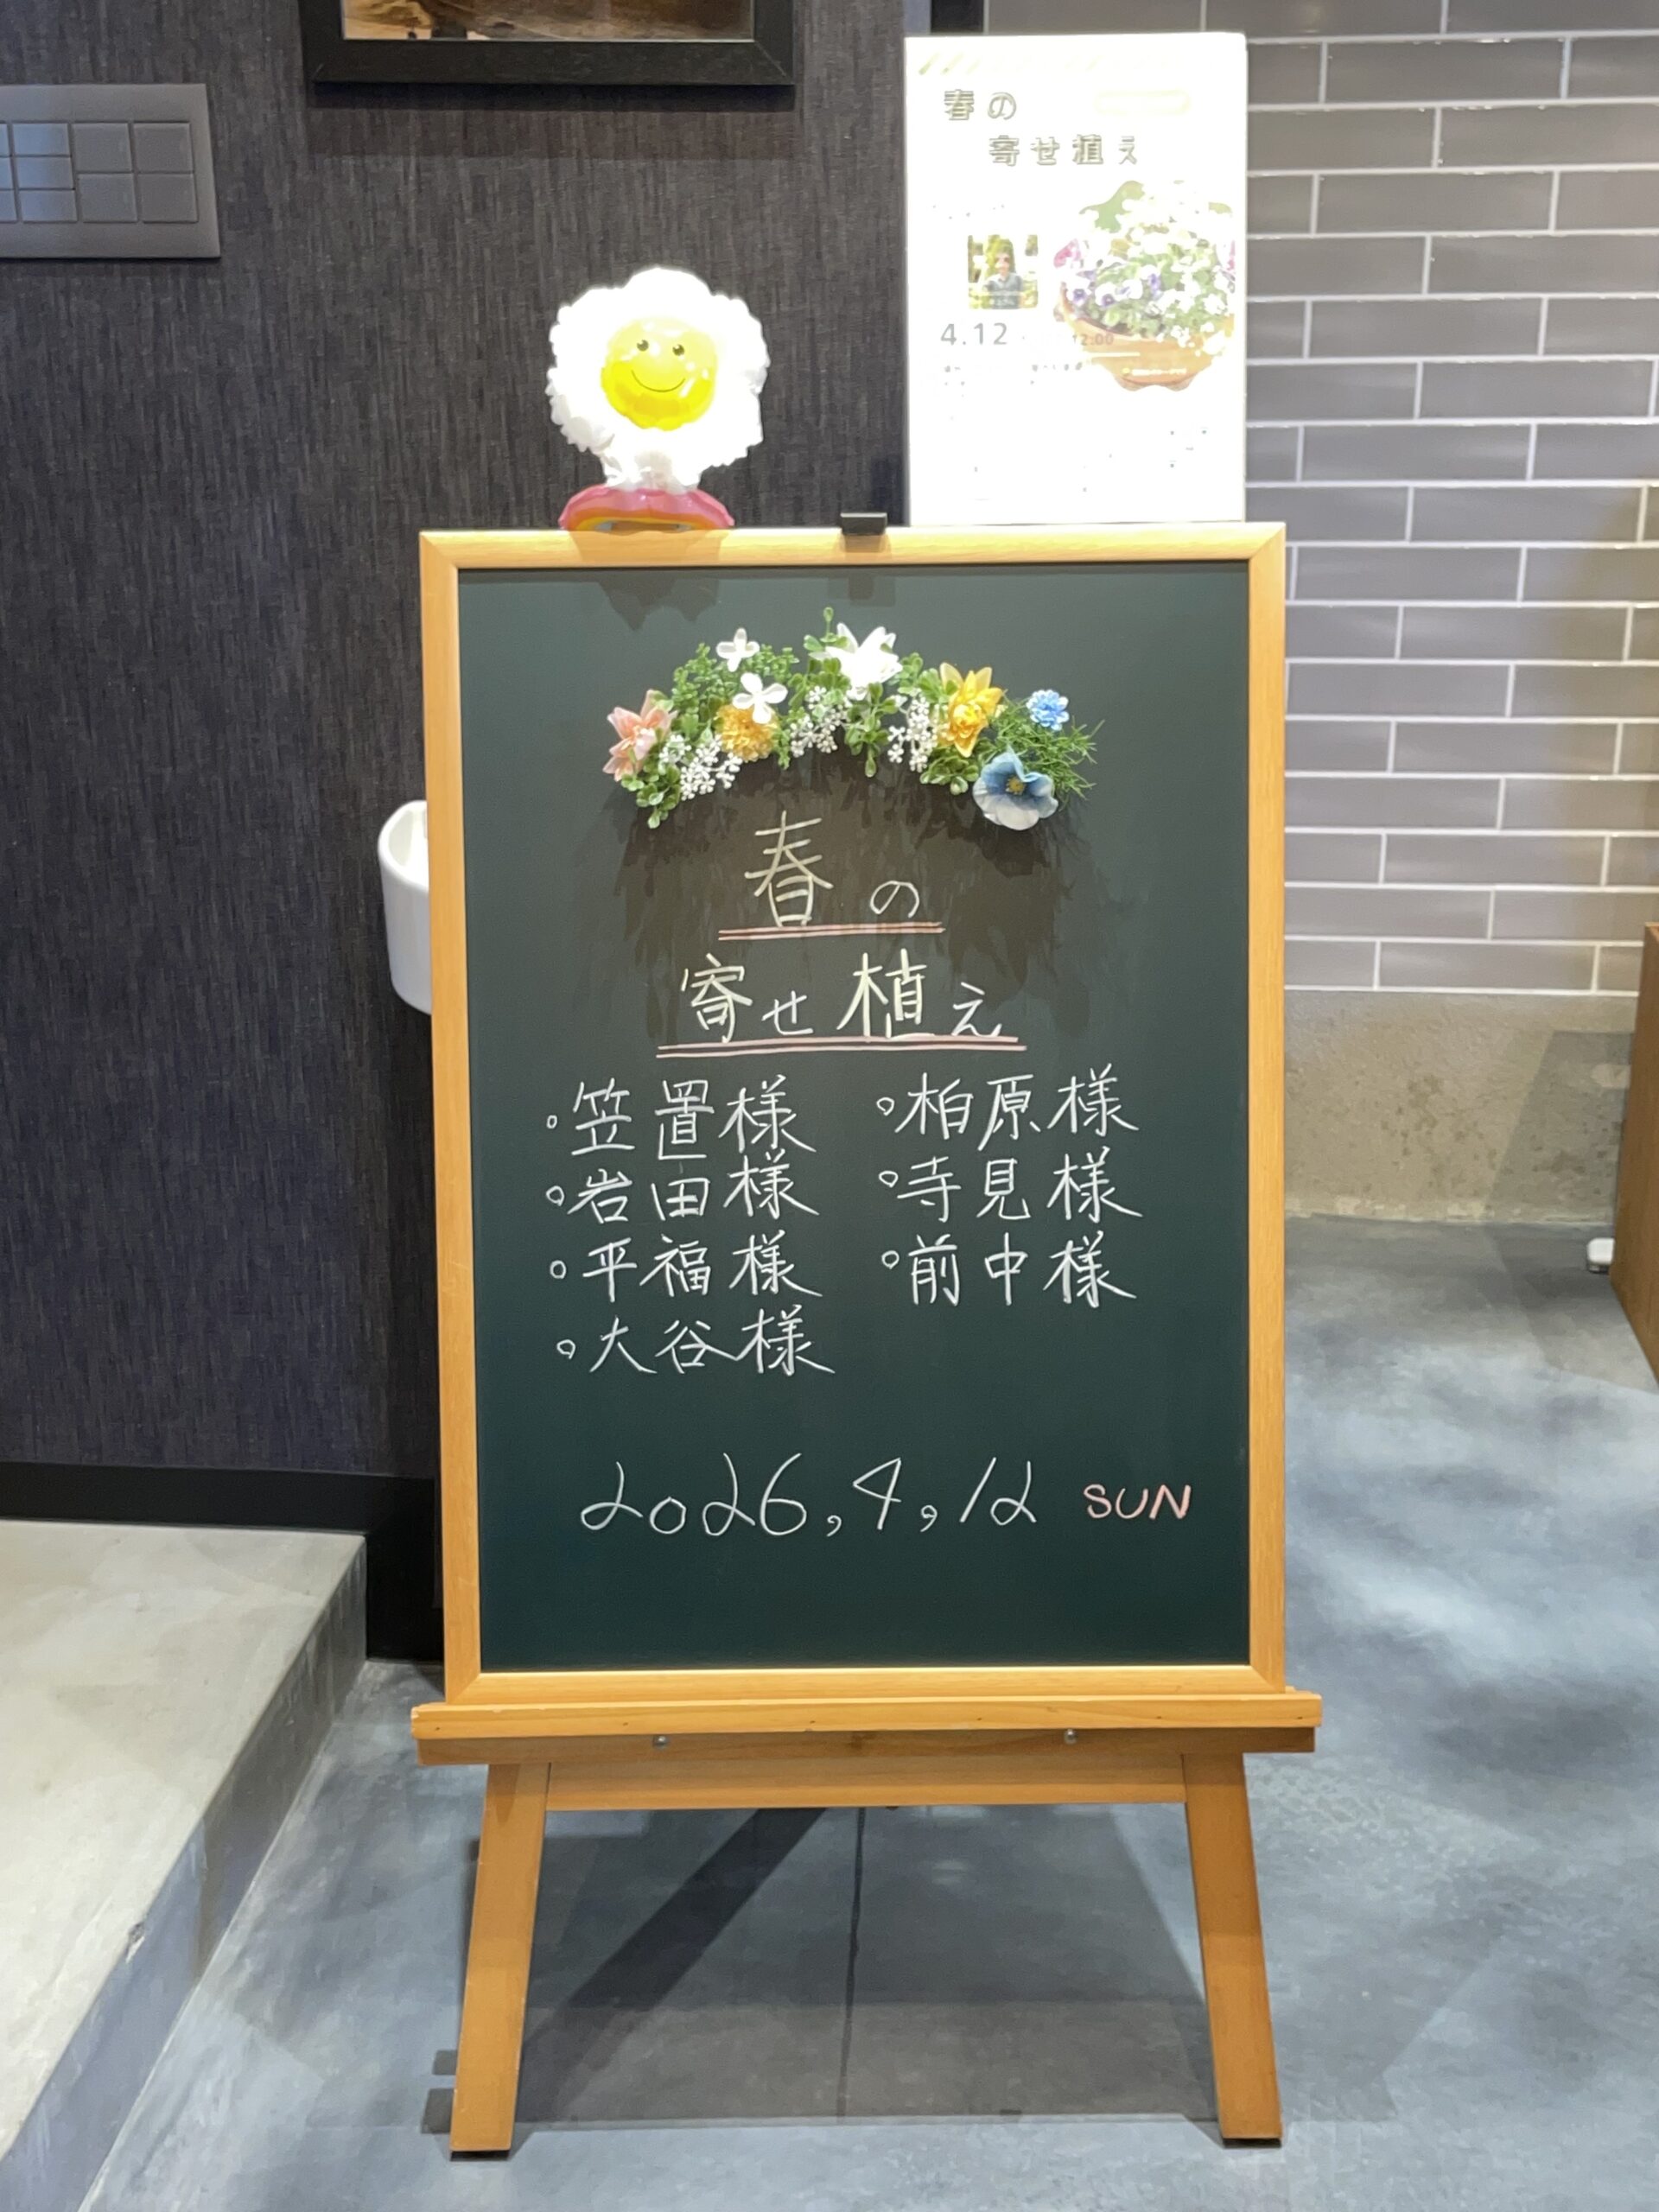 春の
寄せ植え
4.12
12:00
春の
寄せ植え
笠置様
岩田様
平福様
大谷様
柏原様
寺見様
前中様
2026,4,12 SUN